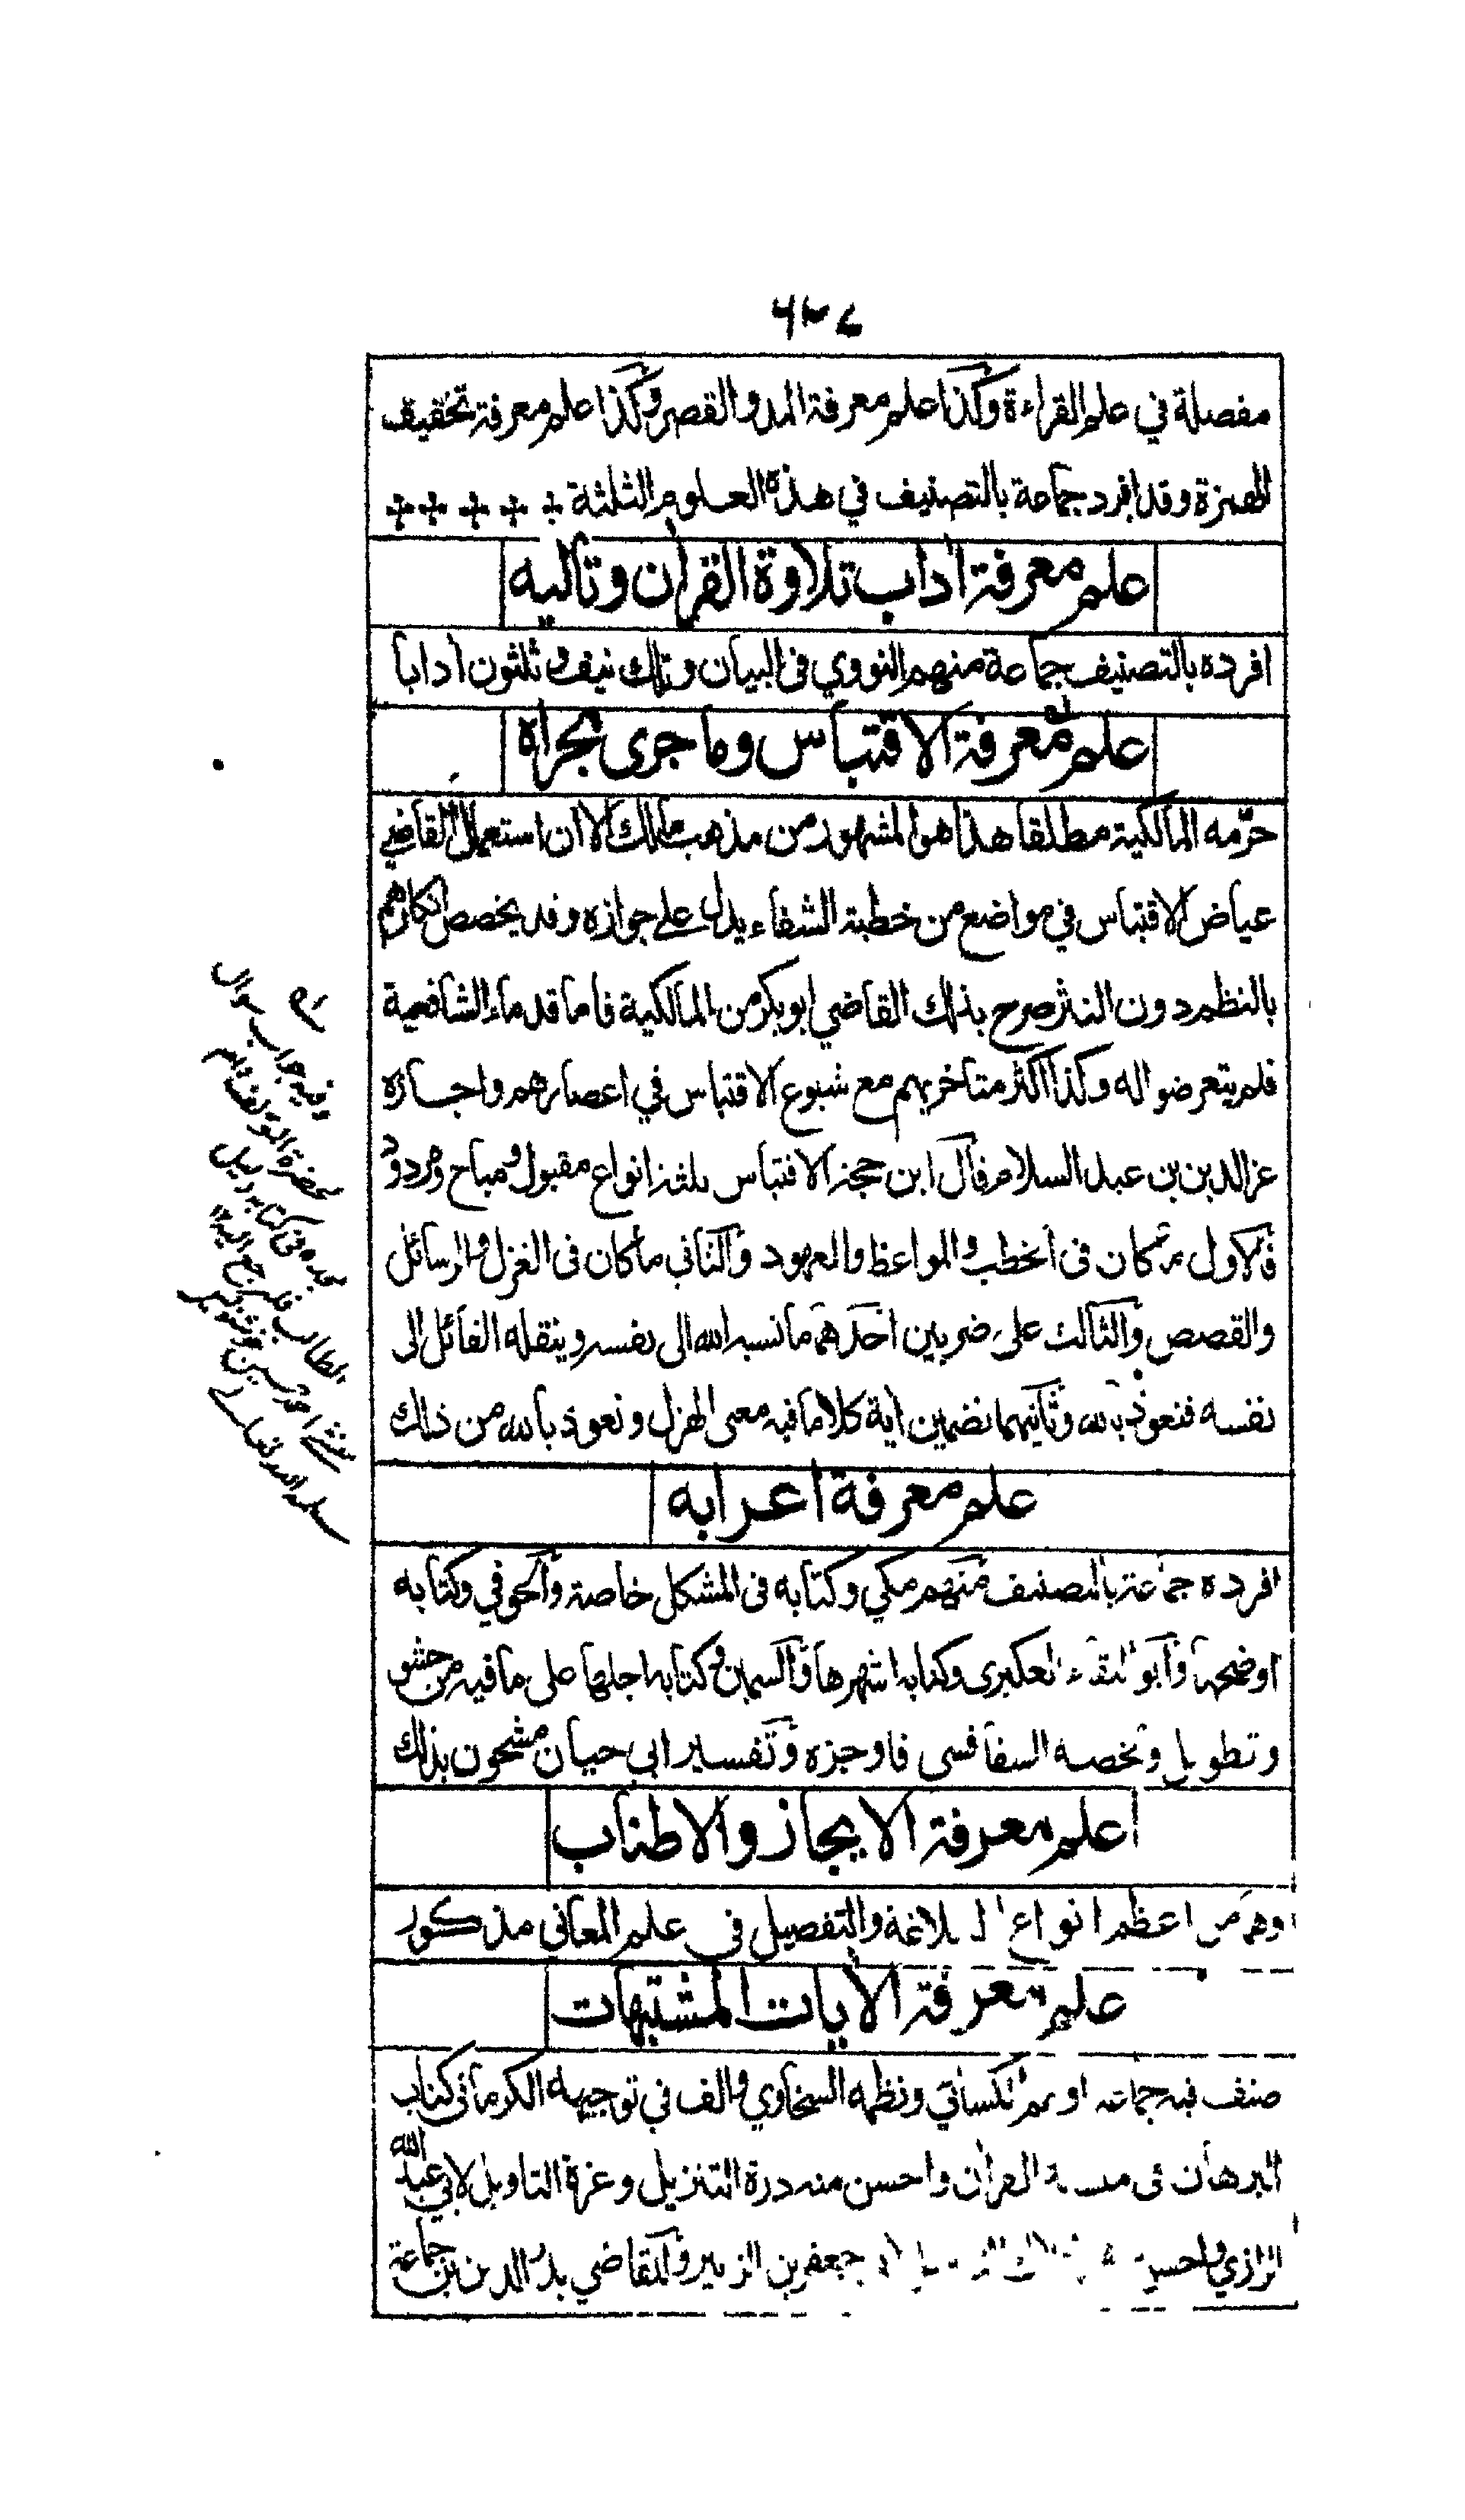 ٦٣٧
مفصلة في علم القراءة وكذا علم معرفة المد والقصر وكذا علم معرفة تخفيف
الهمزة وقد افرد جماعة بالتصنيف في هذه العلوم الثلثة
علم معرفة اداب تلاوة القران وتاليه
افرده بالتصنيف جماعة منهم النووي فى البيان وتلك نيف وثلثون ادابا
علم معرفة الاقتباس وما جرى مجراه
حرّمه المالكية مطلقا هذا هو المشهور من مذهب مالك الا ان استعمال القاضي
عياض الاقتباس في مواضع من خطبة الشفاء يدل على جوازه وقد يخصص انكارهم
بالنظم دون النثر صرح بذلك القاضي ابو بكر من المالكية فاما قدماء الشافعية
فلم يتعرضوا له وكذا اكثر متاخريهم مع شيوع الاقتباس في اعصارهم واجازه
عز الدين بن عبد السلام قال ابن حجة الاقتباس ثلثة انواع مقبول ومباح ومردود
فالاول ما كان فى الخطب والمواعظ والعهود والثانى ما كان فى الغزل والرسائل
والقصص والثالث على ضربين احدهما ما نسبه الله الى نفسه وينقله القائل الى
نفسه فنعوذ بالله وثانيهما تضمين اية كلاما فيه معنى الهزل ونعوذ بالله من ذلك
وفيه جواب سوال
علم معرفة اعرابه
افرده جماعة بالتصنيف منهم مكي وكتابه فى المشكل خاصة والحوفي وكتابه
اوضحها وابو البقاء العكبرى وكتابه اشهرها والسمين وكتابه اجلها على ما فيه من حشو
وتطويل ولخصه السفاقسى فاوجزه وتفسير ابي حيان مشحون بذلك
علم معرفة الايجاز والاطناب
وهما من اعظم انواع البلاغة والتفصيل فى علم المعانى مذكور
علم معرفة الايات المشتبهات
صنف فيه جماعة اولهم الكسائي ونظمه السخاوي والف في توجيهه الكرمانى كتاب
البرهان فى متشابه القران واحسن منه درة التنزيل وغرة التاويل لابي عبد الله
الرازي واحسن جعفر بن الزبير وللقاضي بدر الدين بن جماعة